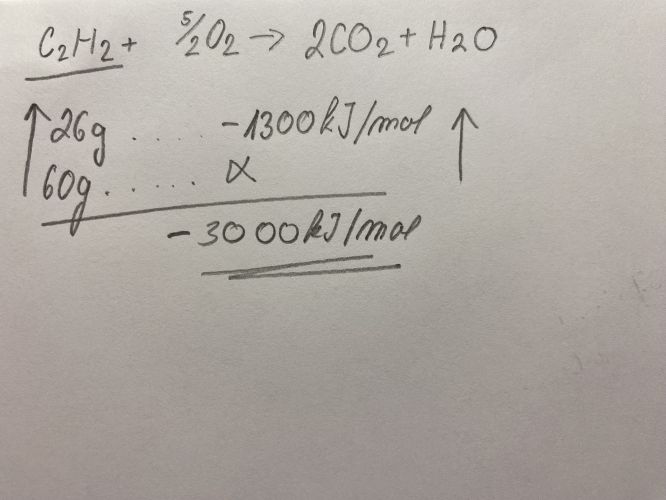 C₂H₂ + 5/2O₂ → 2CO₂ + H₂O
↑ 26g ..... -1300kJ/mol ↑
60g ...... x
-3000kJ/mol